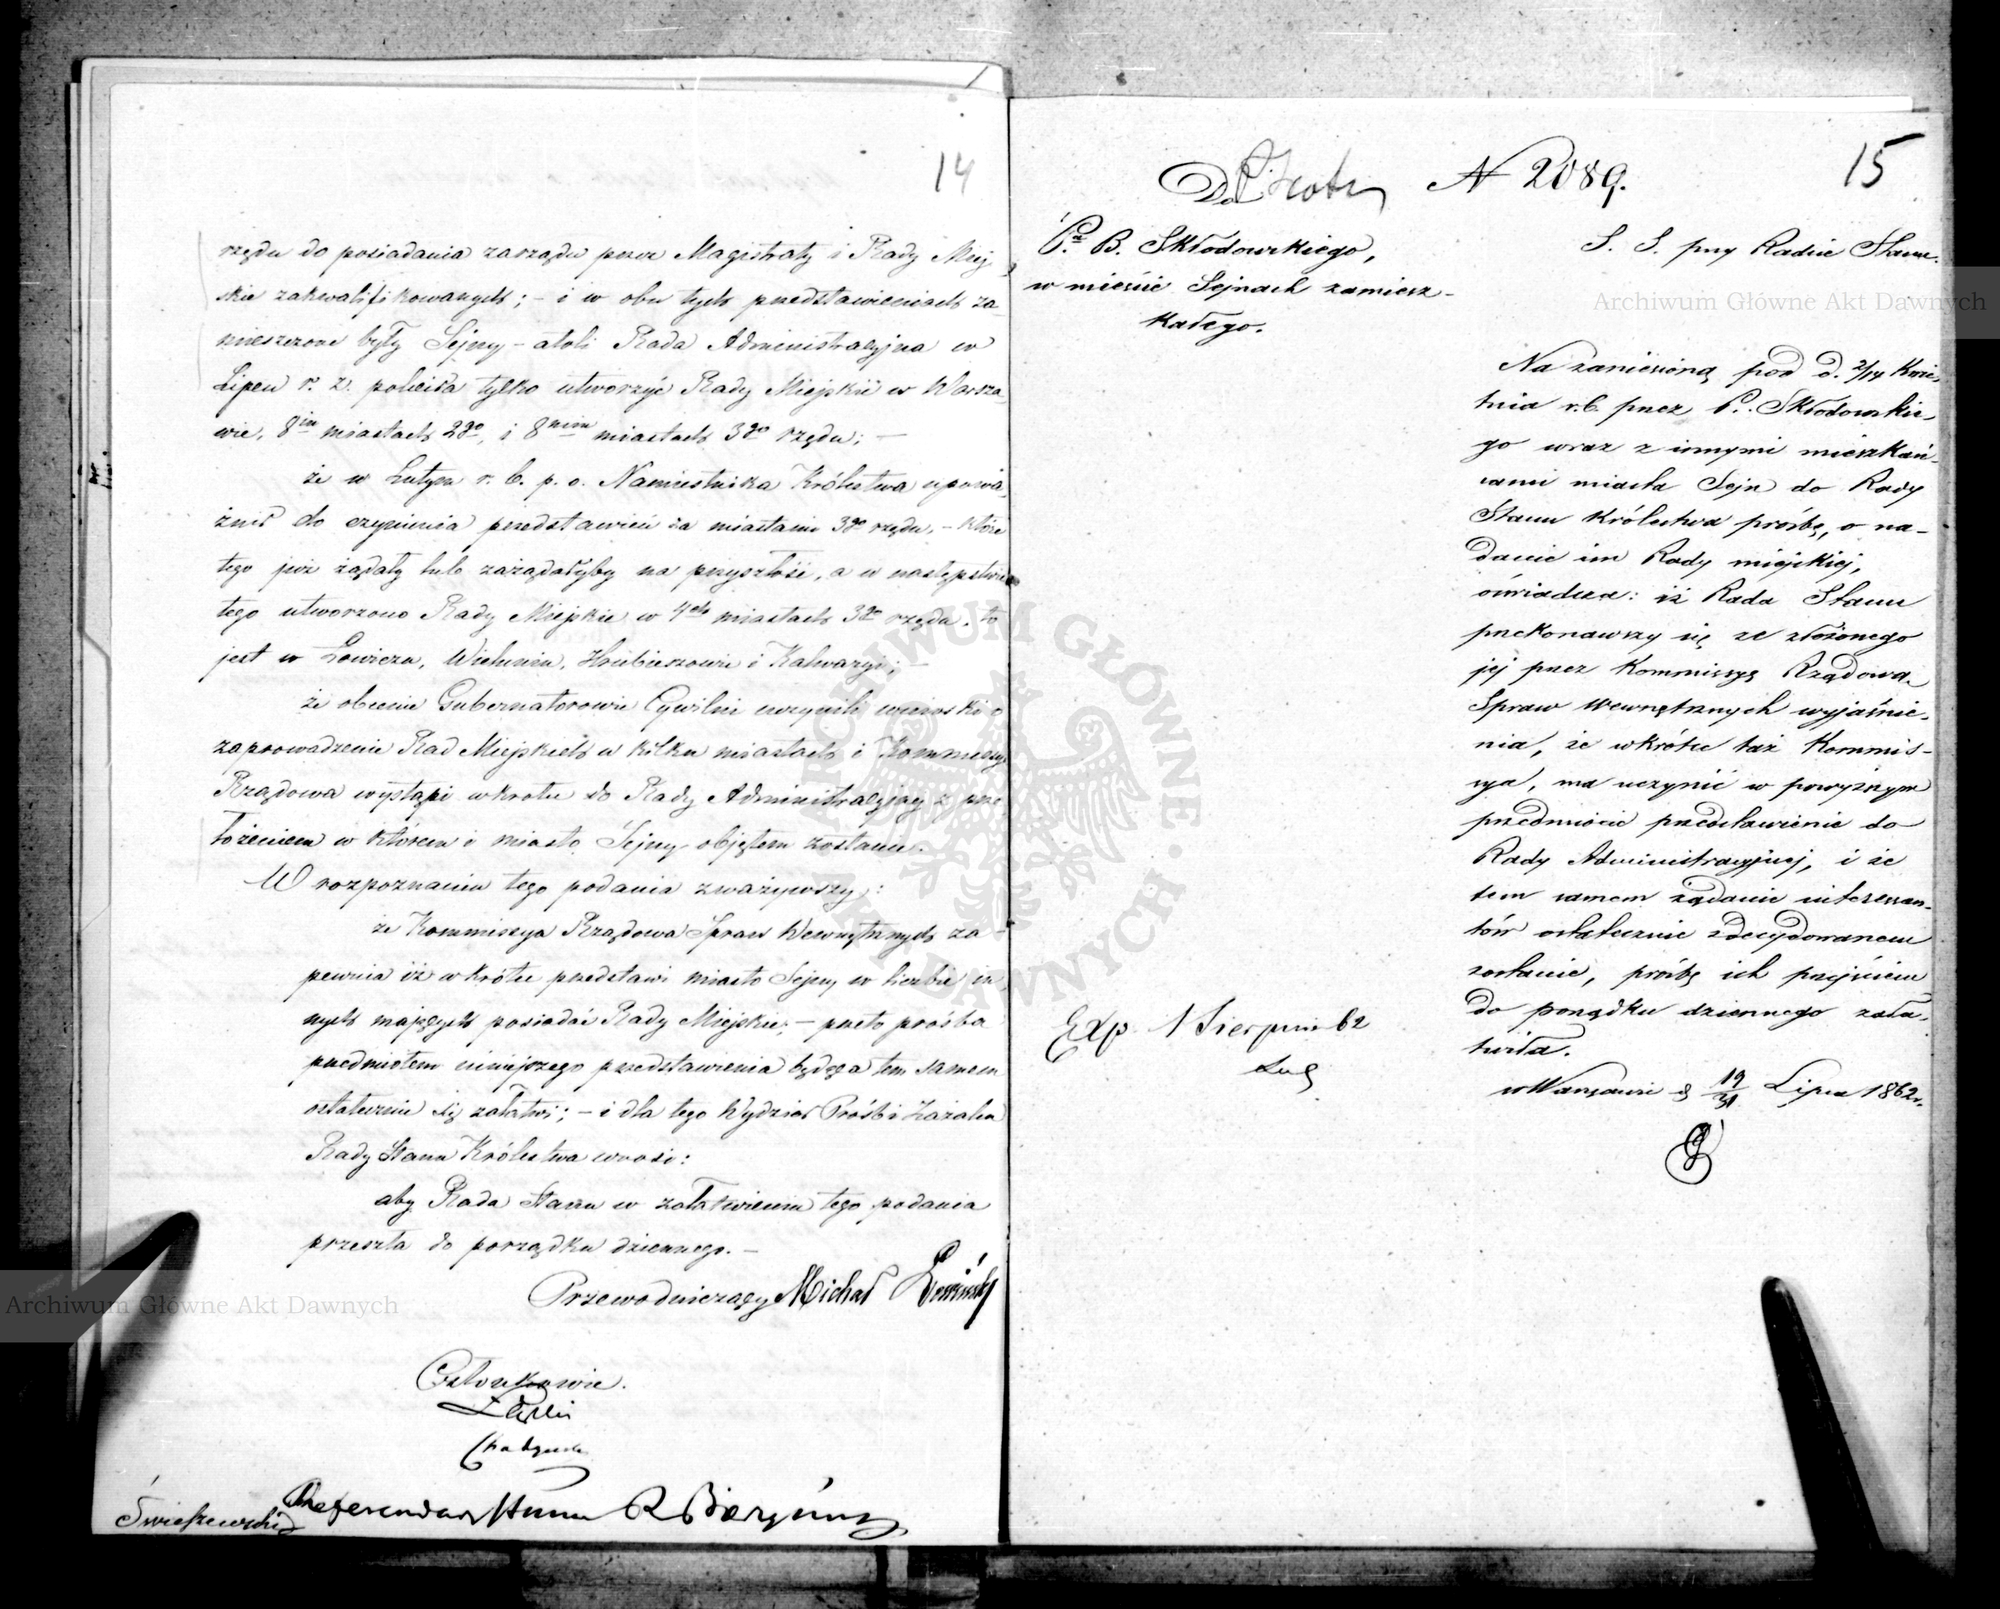 14
rzędu do posiadania zarządu przez Magistraty i Rady Miej-
skie zakwalifikowanych; – i w obu tych przedstawieniach za-
mieszczone były Sejny – atoli Rada Administracyjna w
Lipcu r. z. poleciła tylko utworzyć Rady Miejskie w Warsza-
wie, 8iu miastach 2go, i 8miu miastach 3go rzędu; –
że w Lutym r. b. p. o. Namiestnika Królestwa upowa-
żnił do czynienia przedstawień za miastami 3go rzędu, – które
tego już żądały lub zażądałyby na przyszłość, a w następstwie
tego utworzono Rady Miejskie w 4ch miastach 3go rzędu, to
jest w Łowiczu, Wieluniu, Hrubieszowie i Kalwaryi; –
że obecnie Gubernatorowie Cywilni uczynili wnioski o
zaprowadzenie Rad Miejskich w kilku miastach i Kommissya
Rządowa wystąpi wkrótce do Rady Administracyjnej z przed-
łożeniem w którem i miasto Sejny objętem zostanie.
W rozpoznaniu tego podania zważywszy:
że Kommissya Rządowa Spraw Wewnętrznych za-
pewnia iż wkrótce przedstawi miasto Sejny w liczbie in-
nych mających posiadać Rady Miejskie; – przeto prośba
przedmiotem niniejszego przedstawienia będąca tem samem
ostatecznie się załatwi; – i dla tego Wydział Próśb i Zażaleń
Rady Stanu Królestwa wnosi:
aby Rada Stanu w załatwieniu tego podania
przeszła do porządku dziennego. –
Przewodniczący Michał
Członkowie.
Referendarz Stanu R
15
Do N 2089.
P. B. Skłodowskiego,
w mieście Sejnach zamiesz-
kałego.
S. S. przy Radzie Stanu.
Na zaniesioną pod d. 2/14 Kwie-
tnia r.b. przez P. Skłodowskie-
go wraz z innymi mieszkań-
cami miasta Sejn do Rady
Stanu Królestwa prośbę, o na-
danie im Rady miejskiej,
oświadcza: iż Rada Stanu
przekonawszy się ze złożonego
jej przez Kommissyę Rządową
Spraw Wewnętrznych wyjaśnie-
nia, że wkrótce taż Kommis-
sya, ma uczynić w powyższym
przedmiocie przedstawienie do
Rady Administracyjnej, i że
tem samem żądanie interessan-
tów ostatecznie zdecydowanem
zostanie, prośbę ich przejściem
do porządku dziennego zała-
twiła.
w Warszawie d 19/31 Lipca 1862 r.
Exp 1 Sierpnia 62
Archiwum Główne Akt Dawnych
Archiwum Główne Akt Dawnych
ARCHIWUM GŁÓWNE AKT DAWNYCH